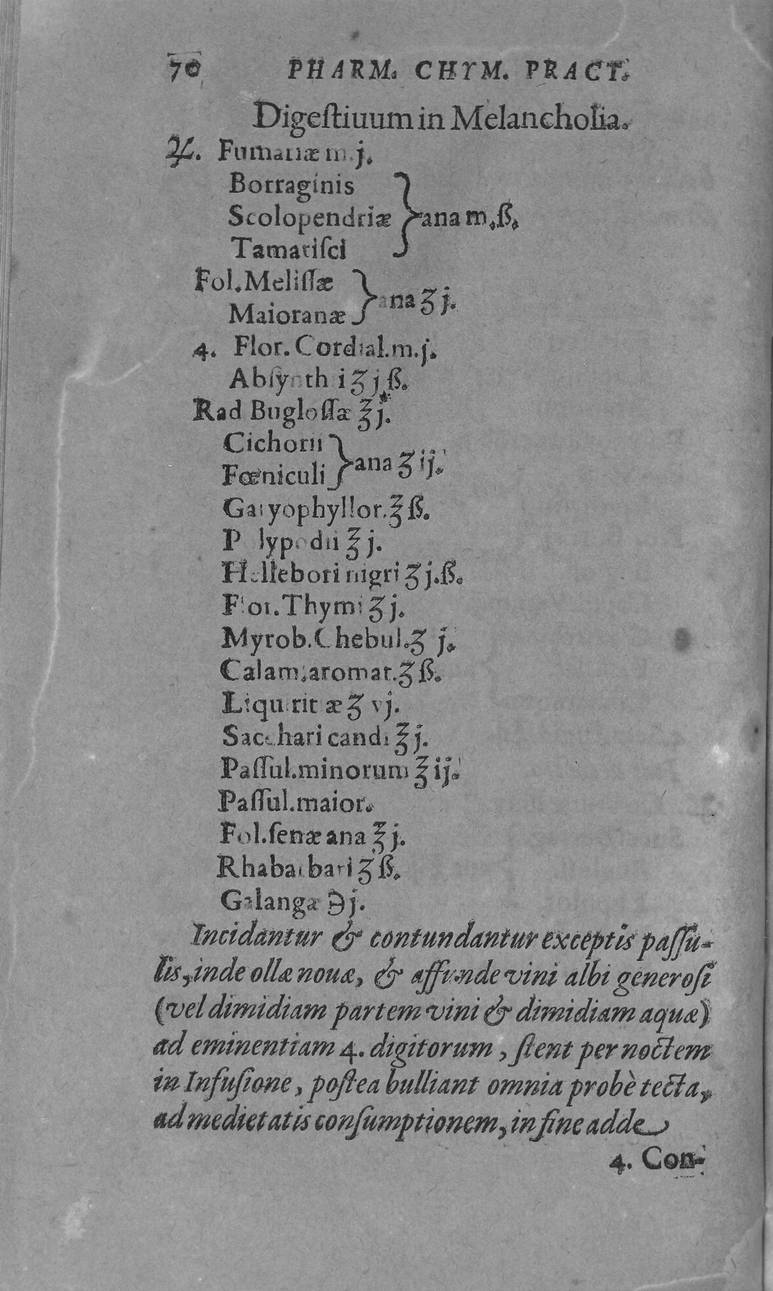 70 PHARM. CHYM. PRACT.
Digeſtiuum in Melancholia.
℞. Fumariæ m.j.
Borraginis
Scolopendriæ } ana m.ß.
Tamariſci
Fol. Meliſſæ
Maioranæ } ana ʒ j.
4. Flor. Cordial. m.j.
Abſynthii ʒ j ß.
Rad Bugloſſæ ℥ j.
Cichorii
Fœniculi } ana ʒ ij.
Garyophyllor. ℥ ß.
Polypodii ℥ j.
Hellebori nigri ʒ j.ß.
Flor. Thymi ʒ j.
Myrob. Chebul. ʒ j.
Calam. aromat. ʒ ß.
Liquiritiæ ʒ vj.
Sacchari candi ℥ j.
Paſſul. minorum ℥ ij.
Paſſul. maior.
Fol. ſenæ ana ℥ j.
Rhabarbari ʒ ß.
Galangæ ℈ j.
Incidantur & contundantur exceptis paſſu-
lis, inde ollæ nouæ, & affunde vini albi generoſi
(vel dimidiam partem vini & dimidiam aquæ)
ad eminentiam 4. digitorum, ſtent per noctem
in Infuſione, poſtea bulliant omnia probè tecta,
ad medietatis conſumptionem, in fine adde
4. Con-